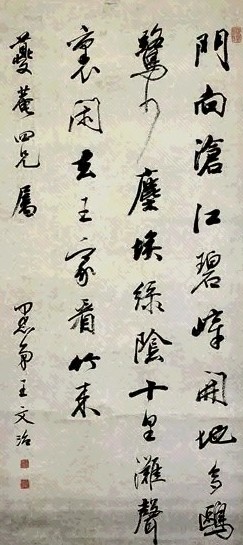 門向滄江碧嶂開地多鷗
鷺少塵埃綠陰十里灘聲
裏閑去王家看竹來
夔菴四兄屬
愚弟王文治